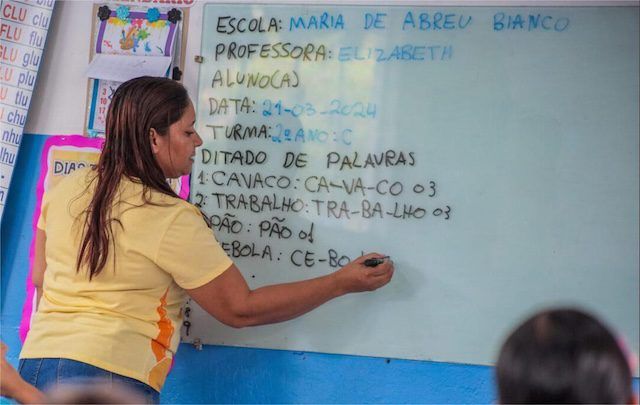 CLU clu
FLU flu
GLU glu
PLU plu
TLU tlu
chu
nhu
lhu
DIAS
ESCOLA: MARIA DE ABREU BIANCO
PROFESSORA: ELIZABETH
ALUNO(A)
DATA: 21-03-2024
TURMA: 2º ANO: C
DITADO DE PALAVRAS
1: CAVACO: CA-VA-CO 03
2: TRABALHO: TRA-BA-LHO 03
PÃO: PÃO 01
EBOLA: CE-BO-